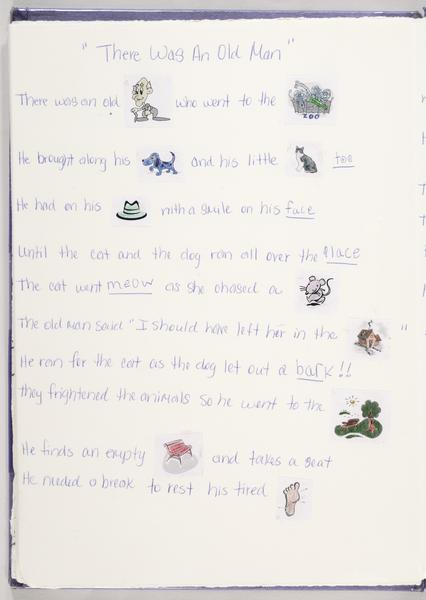 "There Was An Old Man"
There was an old who went to the
ZOO
He brought along his and his little too
He had on his with a smile on his face
Until the cat and the dog ran all over the place
The cat went meow as she chased a
The old man said "I should have left her in the "
He ran for the cat as the dog let out a bark!!
they frightened the animals so he went to the
He finds an empty and takes a seat
He needed a break to rest his tired